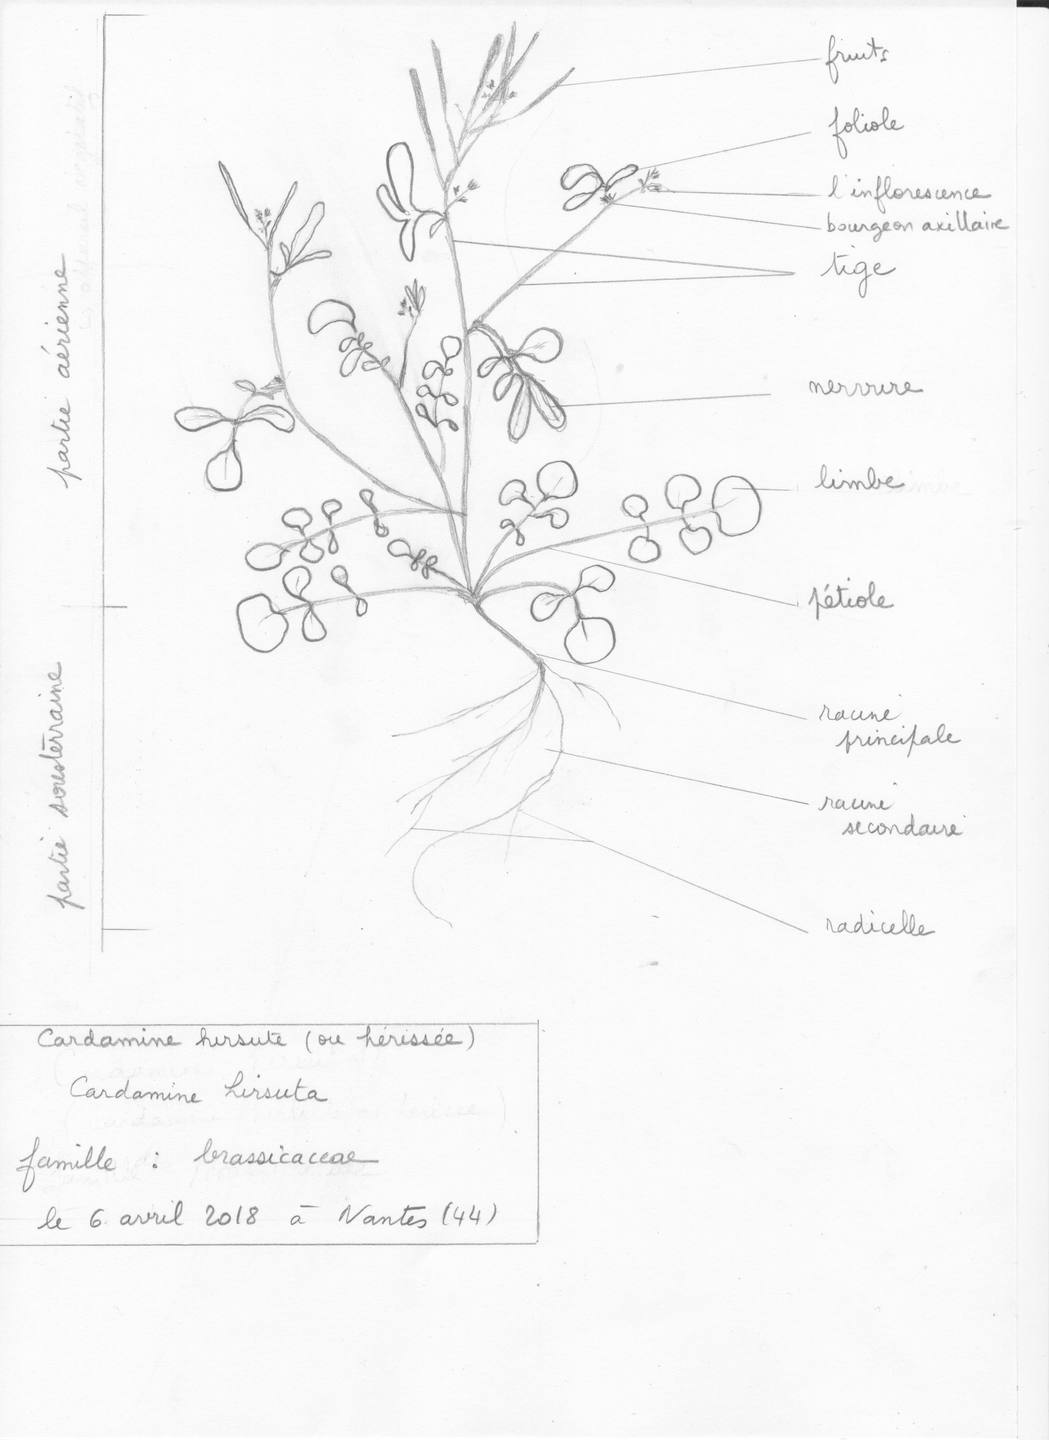 fruits
foliole
l'inflorescence
bourgeon axillaire
tige
nervure
limbe
pétiole
racine
principale
racine
secondaire
radicelle
partie aérienne
partie souterraine
Cardamine hirsute (ou hérissée)
Cardamine hirsuta
famille : brassicaceae
le 6 avril 2018 à Nantes (44)